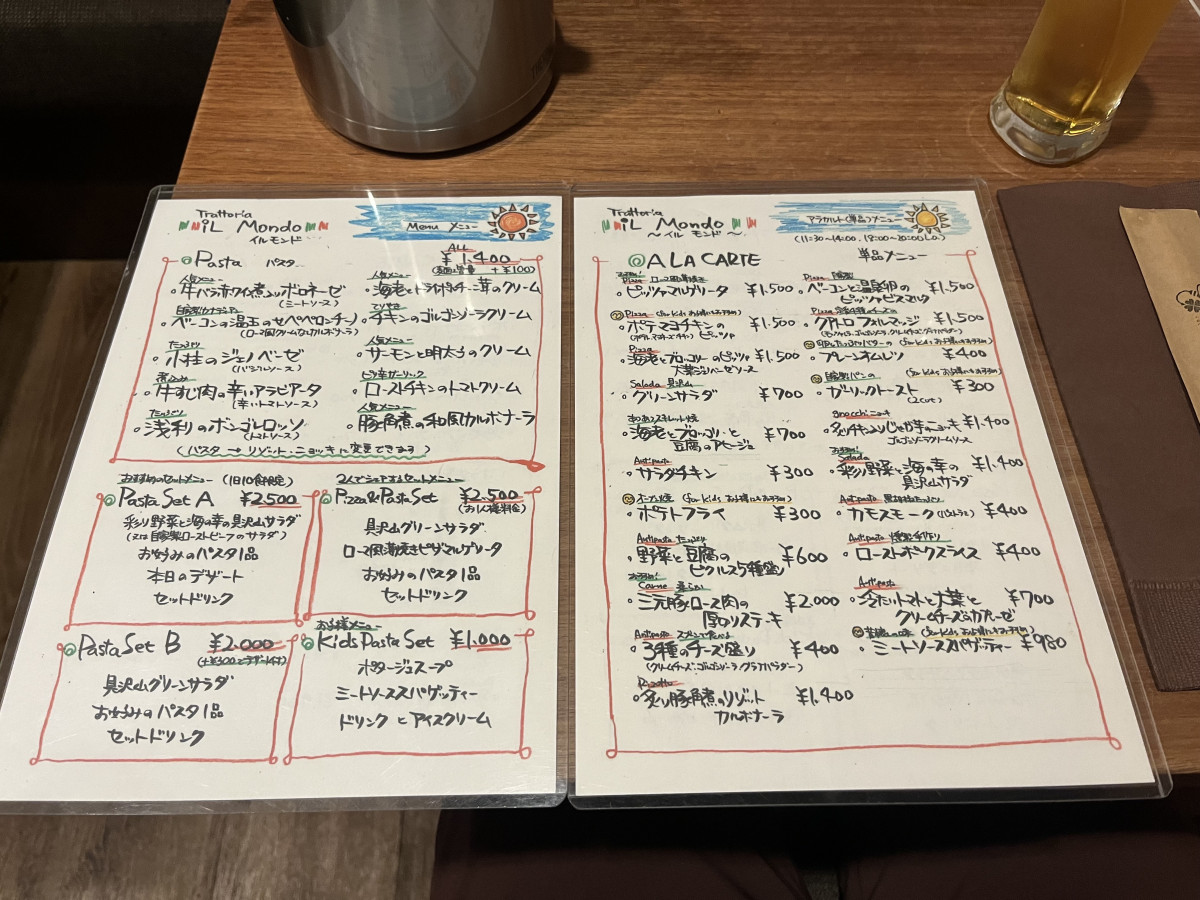 Trattoria
iL Mondo
イル モンド
Menu メニュー
Pasta パスタ
ALL
¥1,400
(麺大盛量 +¥100)
人気メニュー
・牛バラ赤ワイン煮込みボロネーゼ
(ミートソース)
・ベーコンの温玉のせペペロンチーノ
(ローマ風クリームなカルボナーラ)
たっぷり
・小柱のジェノベーゼ
(バジルソース)
煮込み
・牛すじ肉の辛いアラビアータ
(辛いトマトソース)
たっぷり
・浅利のボンゴレロッソ
(トマトソース)
人気メニュー
・海老とドライポルチーニ茸のクリーム
・チキンのゴルゴンゾーラクリーム
人気メニュー
・サーモンと明太子のクリーム
ピリ辛ガーリック
・ローストチキンのトマトクリーム
人気メニュー
・豚角煮の和風カルボナーラ
(パスタ→リゾット・ニョッキに変更できます)
おすすめセットメニュー (1日10食限定)
Pasta Set A ¥2,500
彩り野菜と海の幸の具沢山サラダ
(又は自家製ローストビーフのサラダ)
お好みのパスタ1品
本日のデザート
セットドリンク
2人でシェアするセットメニュー
Pizza & Pasta Set ¥2,500
(お1人様料金)
具沢山グリーンサラダ
ローマ風薄焼きピザマルゲリータ
お好みのパスタ1品
セットドリンク
Pasta Set B ¥2,000
(+¥300でデザート付)
具沢山グリーンサラダ
お好みのパスタ1品
セットドリンク
お子様メニュー
Kids Pasta Set ¥1,000
ポタージュスープ
ミートソーススパゲッティー
ドリンク と アイスクリーム
Trattoria
iL Mondo
〜イル モンド〜
アラカルト(単品)メニュー
(11:30~14:00, 18:00~20:00 L.o.)
A LA CARTE 単品メニュー
おすすめ!
Pizza ローマ風薄焼き
・ピッツァマルゲリータ ¥1,500
Pizza (for kids お子様にもお手頃)
・ポテマヨチキンの ピッツァ ¥1,500
Pizza
・海老とブロッコリーのピッツァ ¥1,500
大葉ジェノベーゼソース
Salada 具沢山
・グリーンサラダ ¥700
あつあつスキレット焼
・海老とブロッコリーと ¥700
豆腐のアヒージョ
Antipasto
・サラダチキン ¥300
オーブン焼 (for kids お子様にもお手頃)
・ポテトフライ ¥300
Antipasto たっぷり
・野菜と豆腐の ¥600
ピクルス5種盛り
おすすめ!
Carne 柔らかい
・三元豚ロース肉の ¥2,000
厚切りステーキ
Antipasto
・3種のチーズ盛り ¥400
(クリームチーズ・ゴルゴンゾーラ・グラナパダーノ)
Risotto
・炙り豚角煮のリゾット ¥1,400
カルボナーラ
・ベーコンと温泉卵の ¥1,500
ピッツァビスマルク
・クアトロフォルマッジ ¥1,500
(for kids お子様にもお手頃)
・プレーンオムレツ ¥400
自家製パンの (for kids お子様にもお手頃)
・ガーリックトースト ¥300
(2cut)
Gnocchi ニョッキ
・炙りチキン入りじゃが芋のニョッキ ¥1,400
ゴルゴンゾーラクリームソース
おすすめ!
Salada
・彩り野菜と海の幸の ¥1,400
具沢山サラダ
・カモスモーク (パストラミ) ¥400
・ローストポークスライス ¥400
Antipasto
・冷たいトマトと大葉と ¥700
クリームチーズのカプレーゼ
(for kids お子様にもお手頃)
・ミートソーススパゲッティー ¥980